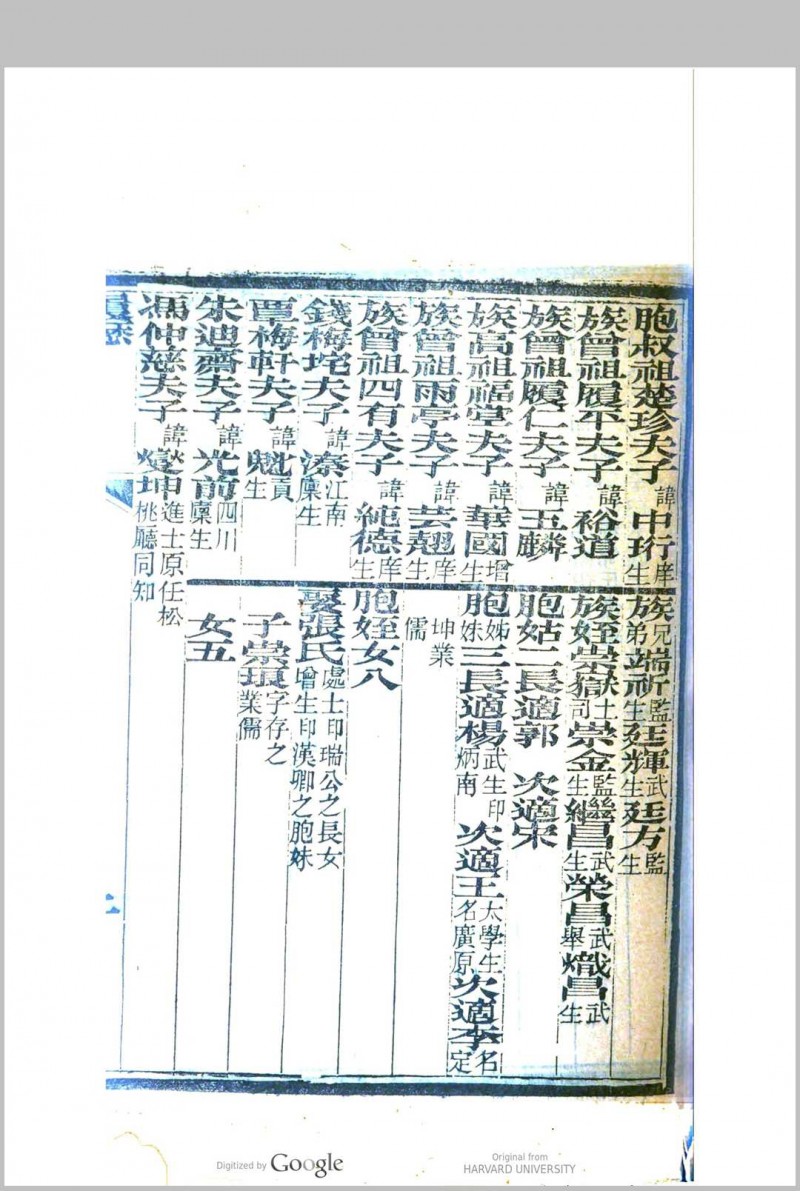 胞叔祖楚珍夫子諱中珩庠生
族曾祖履平夫子諱裕道
族曾祖履仁夫子諱玉麟
族高祖福堂夫子諱華國增生
族曾祖雨亭夫子諱芸翹庠生
族曾祖四有夫子諱純德庠生
錢梅坨夫子諱溱江南廩生
覃梅軒夫子諱魁貢生
朱迪齋夫子諱光前四川廩生
馮仲慈夫子諱燮坤進士原任松桃廳同知
族兄弟端祈監生廷輝武生廷方監生
族姪崇嶽士司崇金監生繼昌武生榮昌武舉熾昌武生
胞姑二長適郭 次適宋
胞姊妹三長適楊武生印炳南 次適王太學生名廣原次適李名定
坤業儒
胞姪女八
娶張氏處士印瑞公之長女增生印漢卿之胞妹
子崇琪字存之業儒
女五
履歷
Digitized by Google
Original from
HARVARD UNIVERSITY